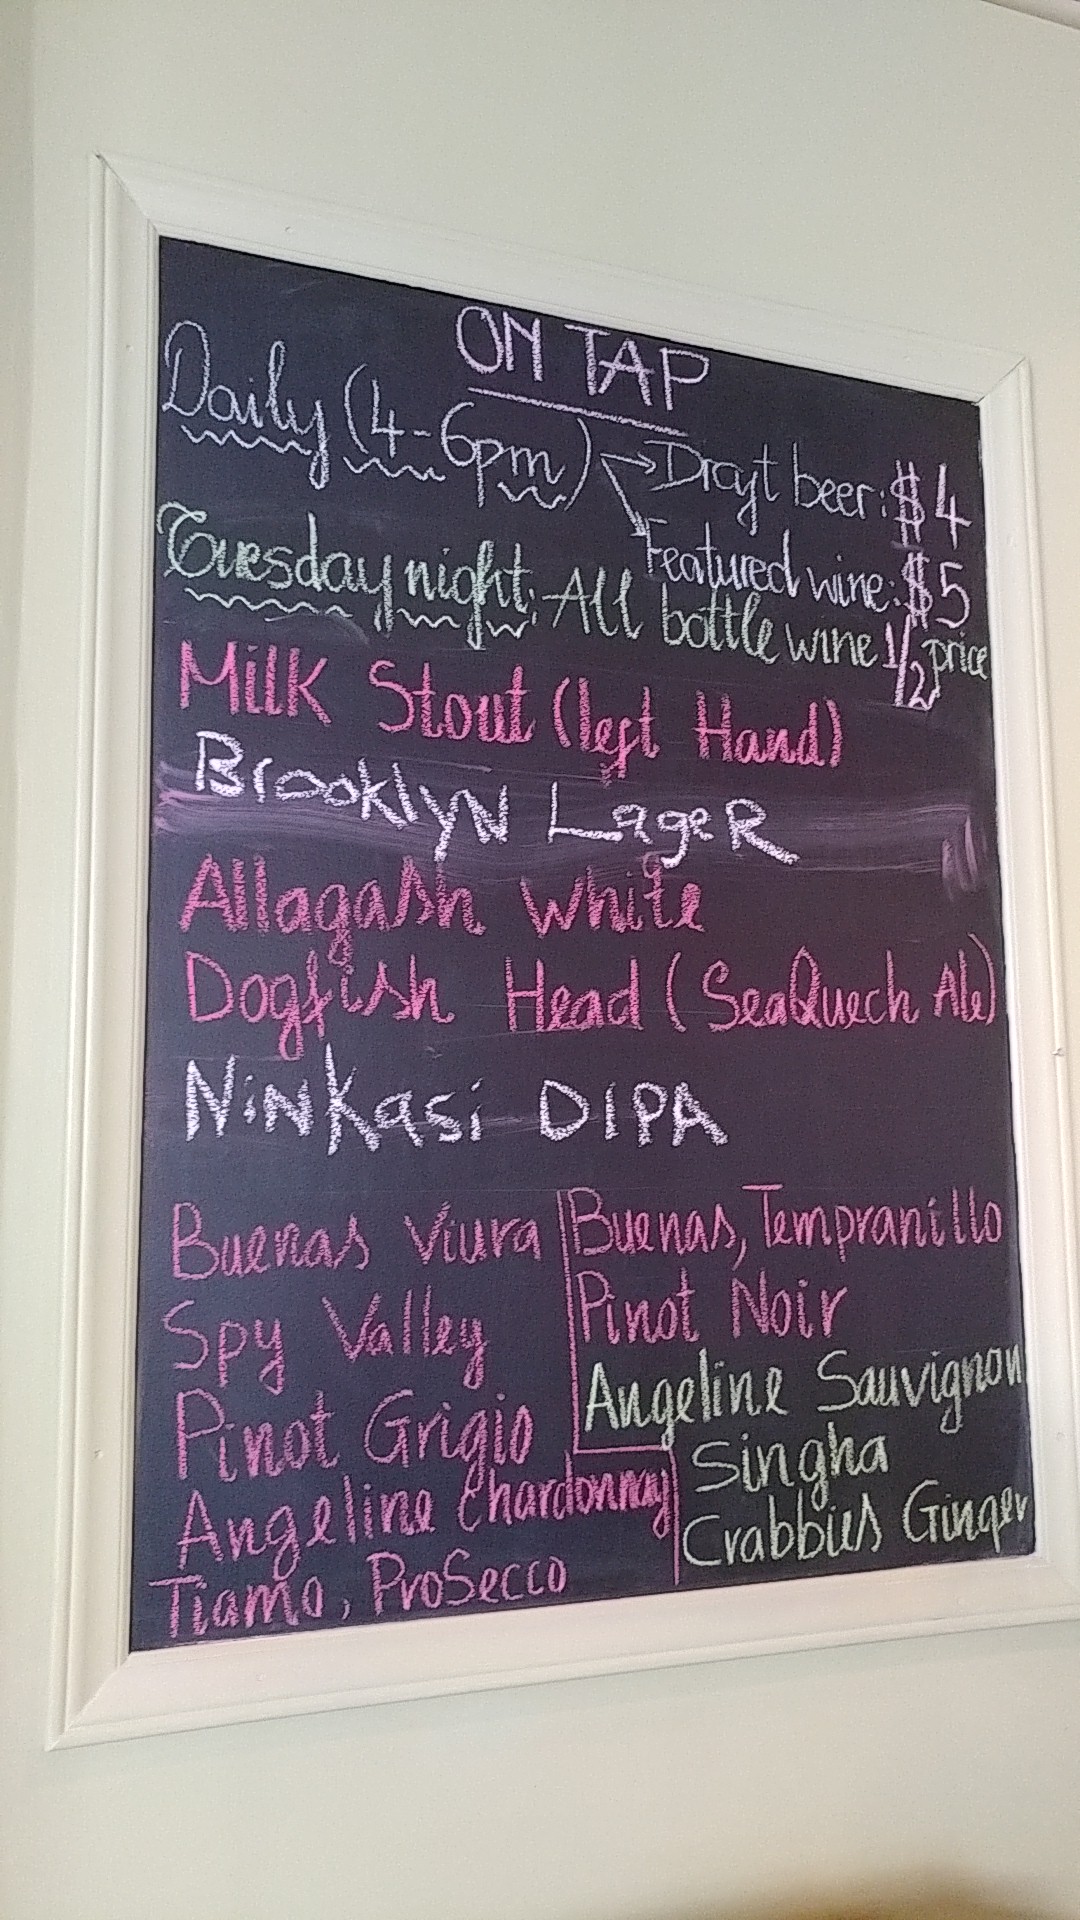 ON TAP
Daily (4-6pm) → Draft beer: $4
Featured wine: $5
Tuesday night: All bottle wine 1/2 price
Milk Stout (left Hand)
BrooklyN LageR
Allagash white
Dogfish Head (SeaQuech Ale)
NiNKasi DIPA
Buenas Viura
Spy Valley
Pinot Grigio
Angeline Chardonnay
Tiamo, ProSecco
Buenas, Tempranillo
Pinot Noir
Angeline Sauvignon
Singha
Crabbies Ginger